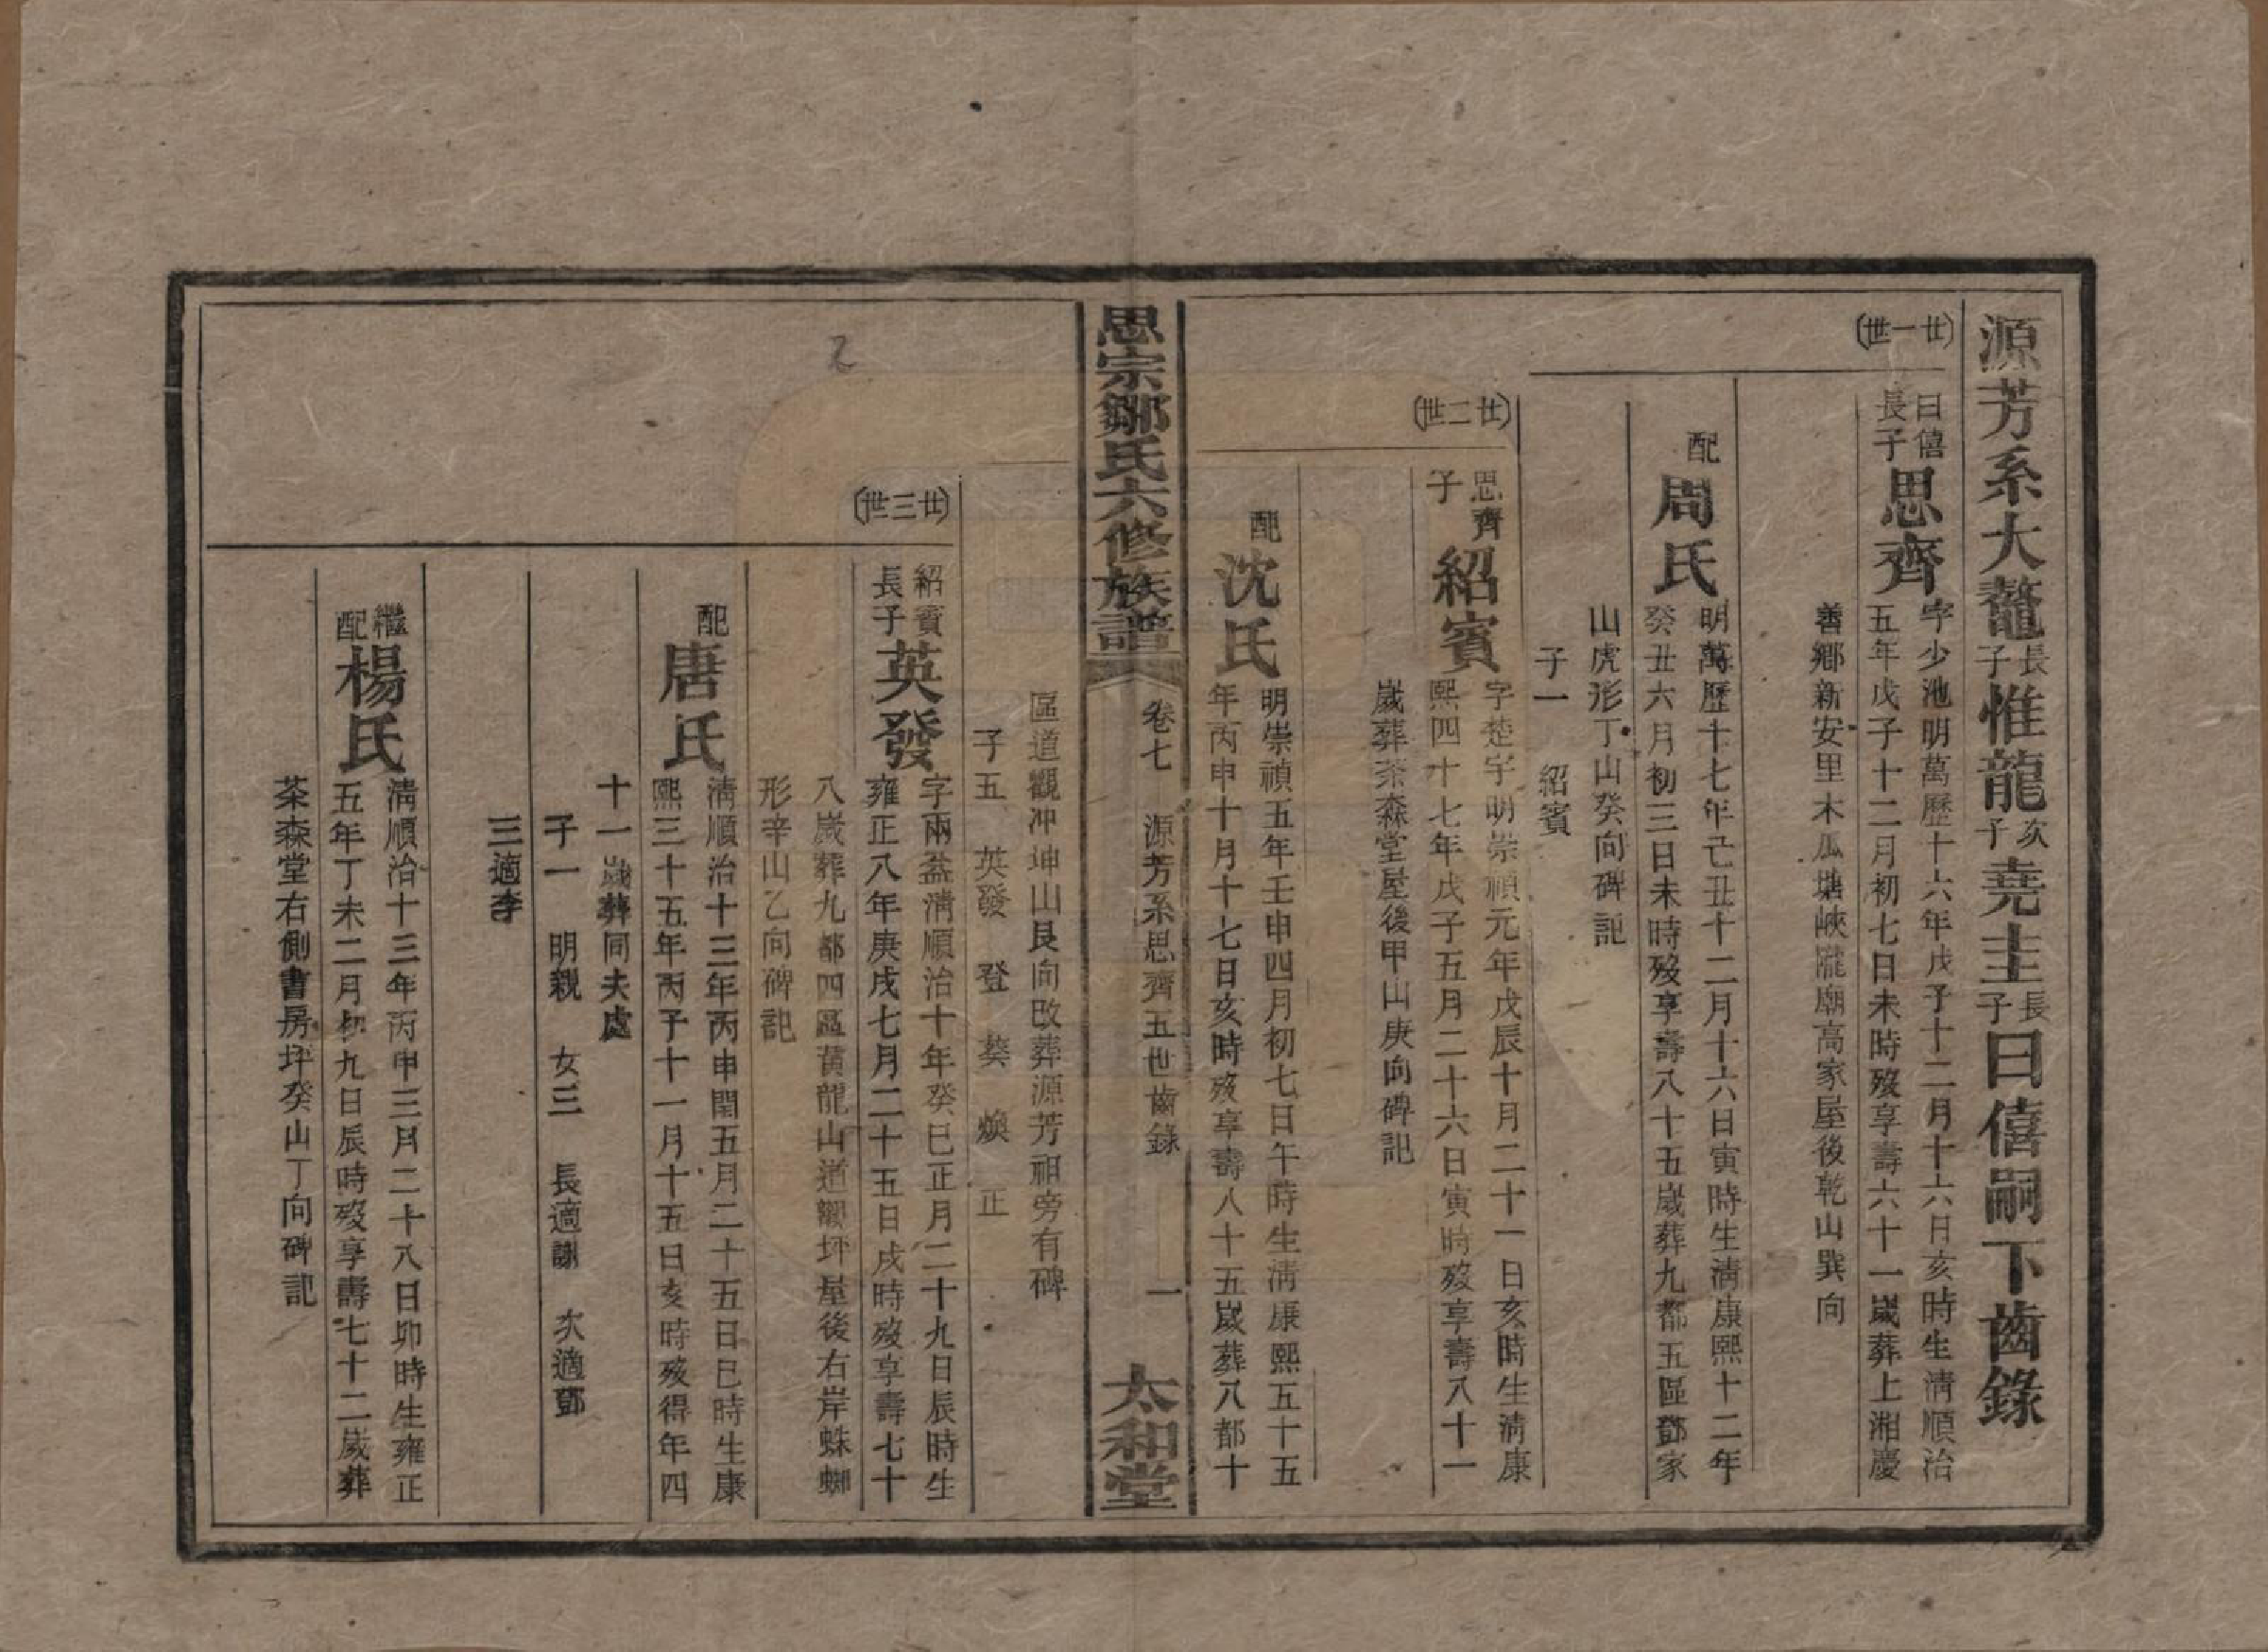 源芳系大鼇長子惟龍次子堯主長子曰僖嗣下齒錄
(廿一世)
曰僖長子思齊
字少池明萬歷十六年戊子十二月十六日亥時生清順治
五年戊子十二月初七日未時歿享壽六十一歲葬上湘慶
善鄉新安里木瓜塘峽隴廟高家屋後乾山巽向
配周氏
明萬歷十七年己丑十二月十六日寅時生清康熙十二年
癸丑六月初三日未時歿享壽八十五歲葬九都五區鄧家
山虎形丁山癸向碑記
子一 紹賓
(廿二世)
思齊子紹賓
字楚宇明崇禎元年戊辰十月二十一日亥時生清康
熙四十七年戊子五月二十六日寅時歿享壽八十一
歲葬茶森堂屋後甲山庚向碑記
配沈氏
明崇禎五年壬申四月初七日午時生清康熙五十五
年丙申十月十七日亥時歿享壽八十五歲葬八都十
思宗鄒氏六修族譜
卷七 源芳系思齊五世齒錄 一
太和堂
區道觀冲坤山艮向改葬源芳祖旁有碑
子五 英發 登 葵 煥 正
(廿三世)
紹賓長子英發
字兩益清順治十年癸巳正月二十九日辰時生
雍正八年庚戌七月二十五日戌時歿享壽七十
八歲葬九都四區黃龍山道觀坪屋後右岸蛛螂
形辛山乙向碑記
配唐氏
清順治十三年丙申閏五月二十五日巳時生康
熙三十五年丙子十一月十五日亥時歿得年四
十一歲葬同夫處
子一 明親 女三 長適謝 次適鄧
三適李
繼配楊氏
清順治十三年丙申三月二十八日卯時生雍正
五年丁未二月初九日辰時歿享壽七十二歲葬
茶森堂右側書房坪癸山丁向碑記